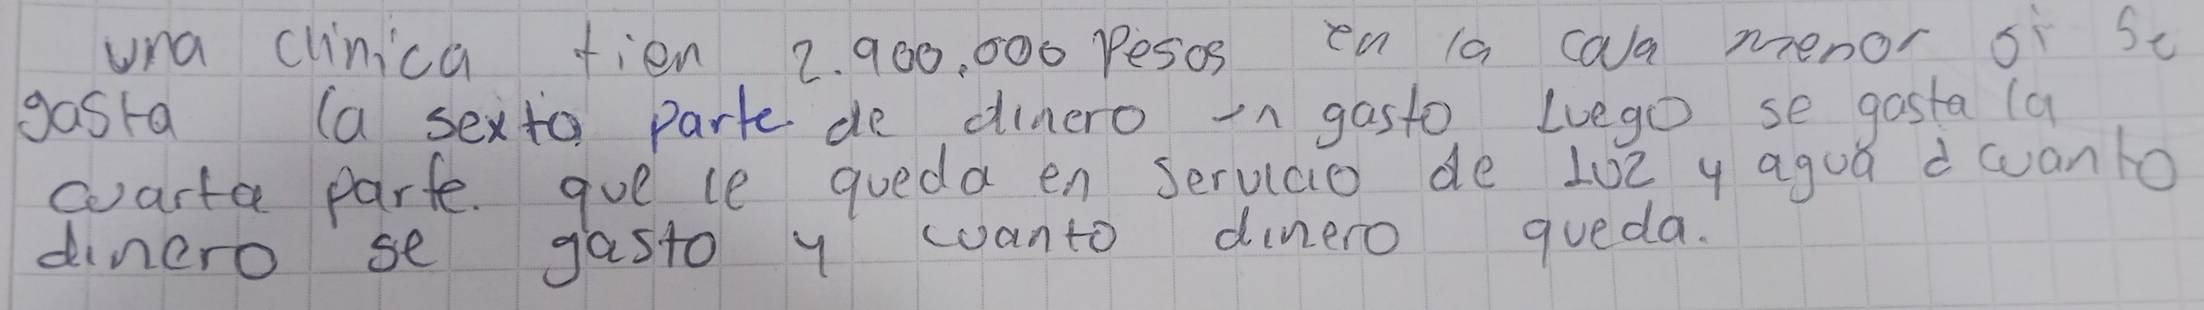 una clinica tien 2.900,000 Pesos en la caja menor si se
gasta la sexta parte de dinero en gasto Luego se gasta la
cuarta parte. que le queda en servicio de luz y agua ¿ cuanto
dinero se gasto y cuanto dinero queda.